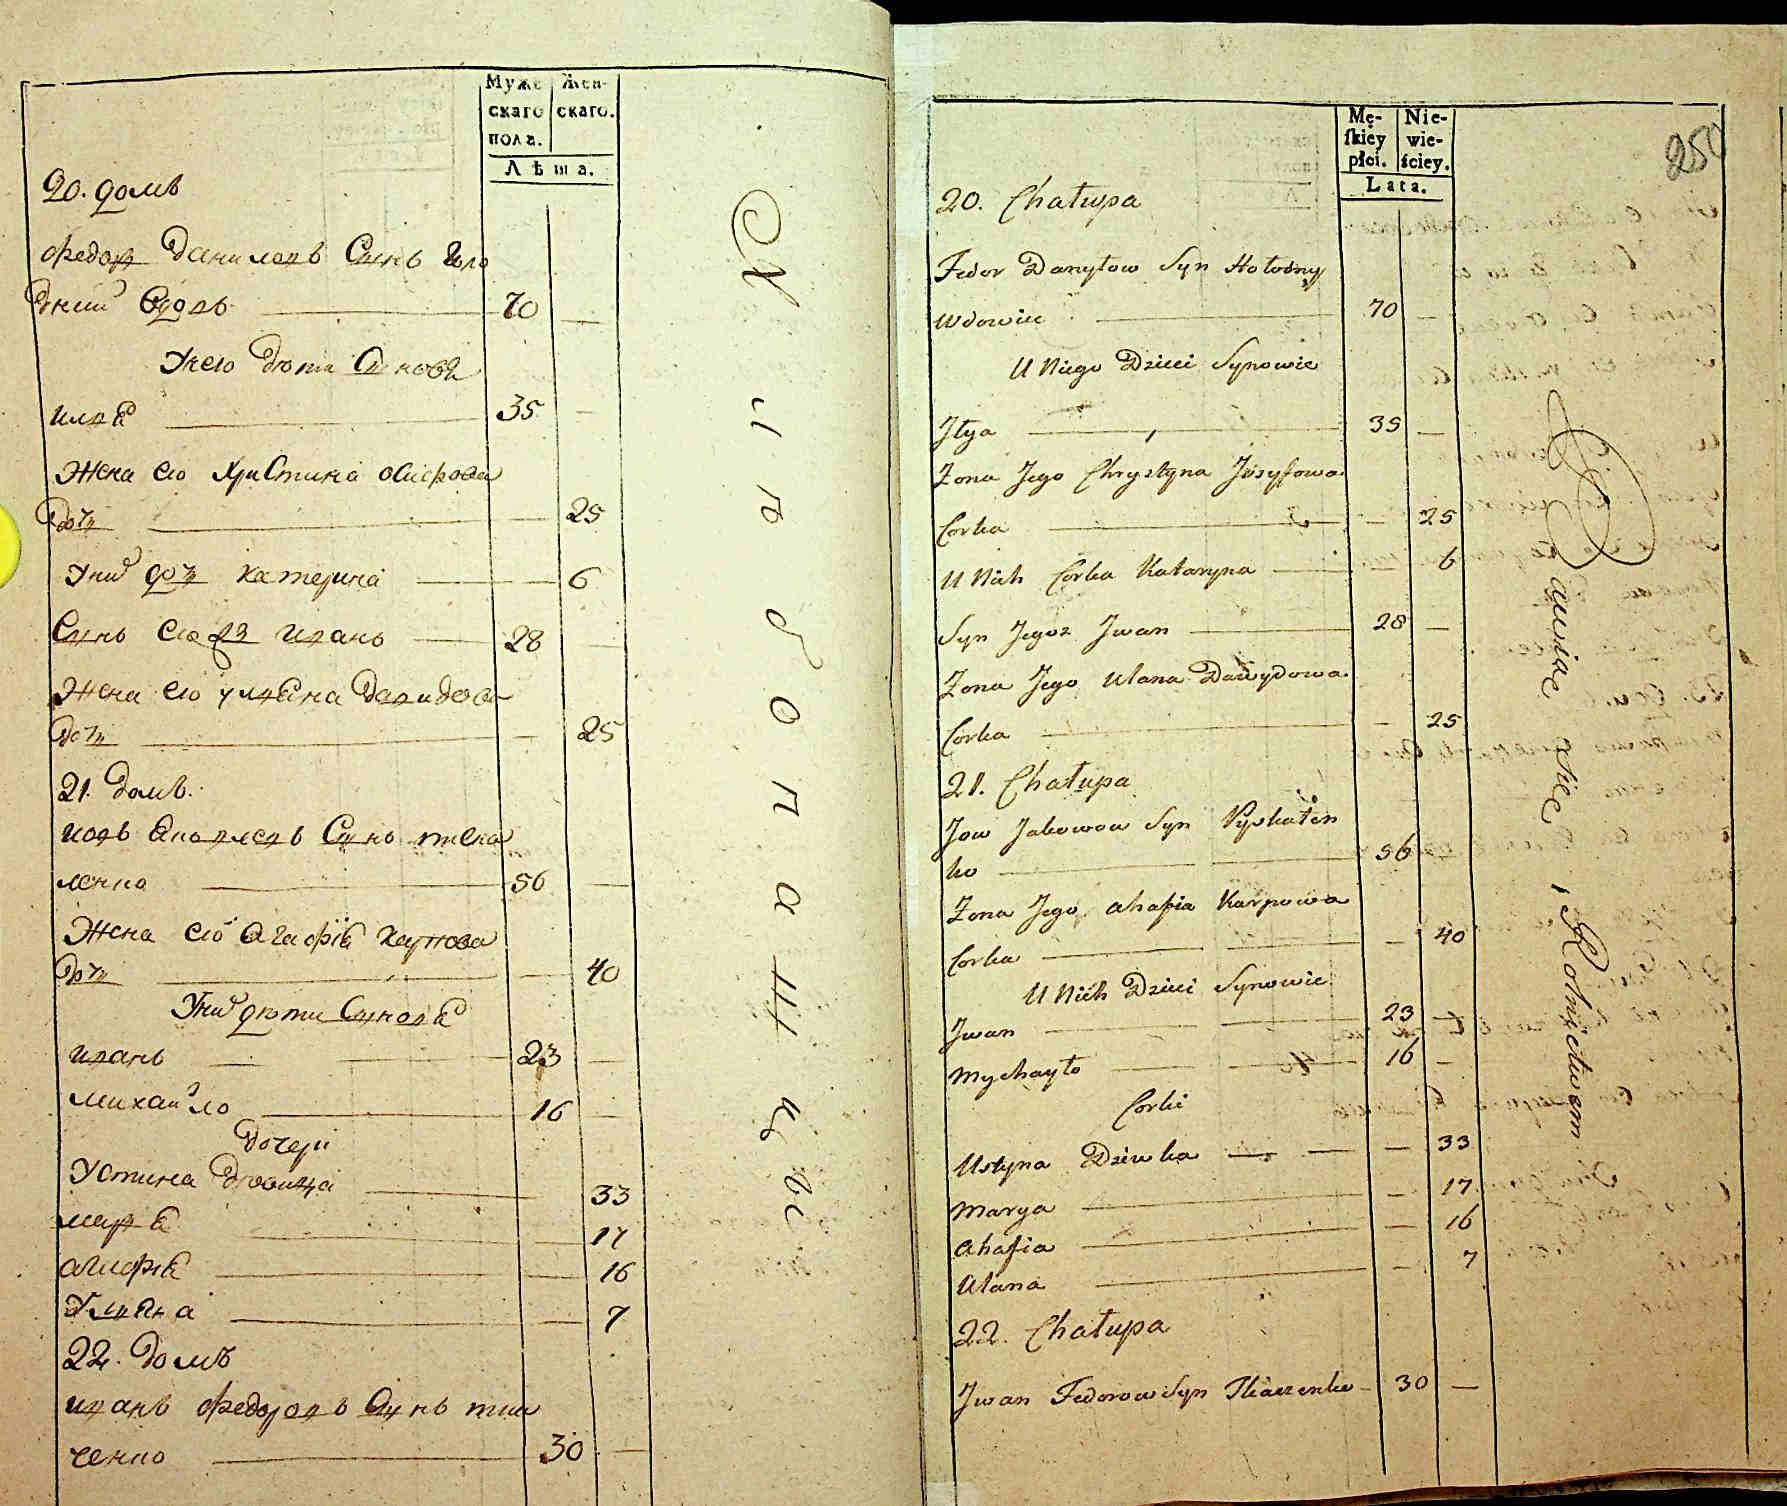 Муже
скаго
пола.
Жен-
скаго.
Лѣта.
20. домъ
Федоръ Даниловъ Сынъ Голо
дний вдовъ 70 —
У него дѣти Синовя
илья 35 —
Жена его Христина осифова
дочь — 25
У них дочь Катерина — 6
Сынъ его 2з иванъ 28 —
Жена его уляна давидова
дочь — 25
21. домъ
иовъ яковлевъ Сынъ
ленко 56 —
Жена его Агафія Карпова
дочь — 40
У них дѣти Синовя
иванъ 23 —
михайло 16 —
дочери
Устина дѣвица 33
марья — 17
агафія — 16
Уляна — 7
22. домъ
иванъ Федоровъ Сынъ тка
ченко 30 —
Хлѣбопашцы
Mę-
skiey
płci.
Nie-
wie-
ściey.
Lata.
20. Chałupa
Fedor Danyłow Syn Hołodny
Wdowiec 70 —
U Niego Dzieci Synowie
Jłya 35 —
Zona Jego Chrystyna Josyfowa
Corka — 25
U Nich Corka Kataryna — 6
Syn Jego 2 Jwan 28 —
Zona Jego Ulana Dawydowa
Corka — 25
21. Chałupa
Jow Jakowow Syn
ko 56 —
Zona Jego Ahafia Karpowa
Corka — 40
U Nich Dzieci Synowie
Jwan 23 —
Mychayło 16 —
Corki
Ustyna Dziewka — 33
Marya — 17
Ahafia — 16
Ulana — 7
22. Chałupa
Jwan Fedorow Syn Tkaczenko 30 —
Bawiąc się Rolnictwem